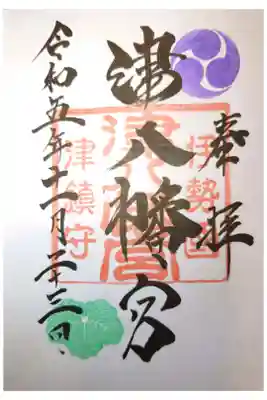 奉拝
伊勢国
津八幡宮
津鎮守
令和五年十一月二十三日